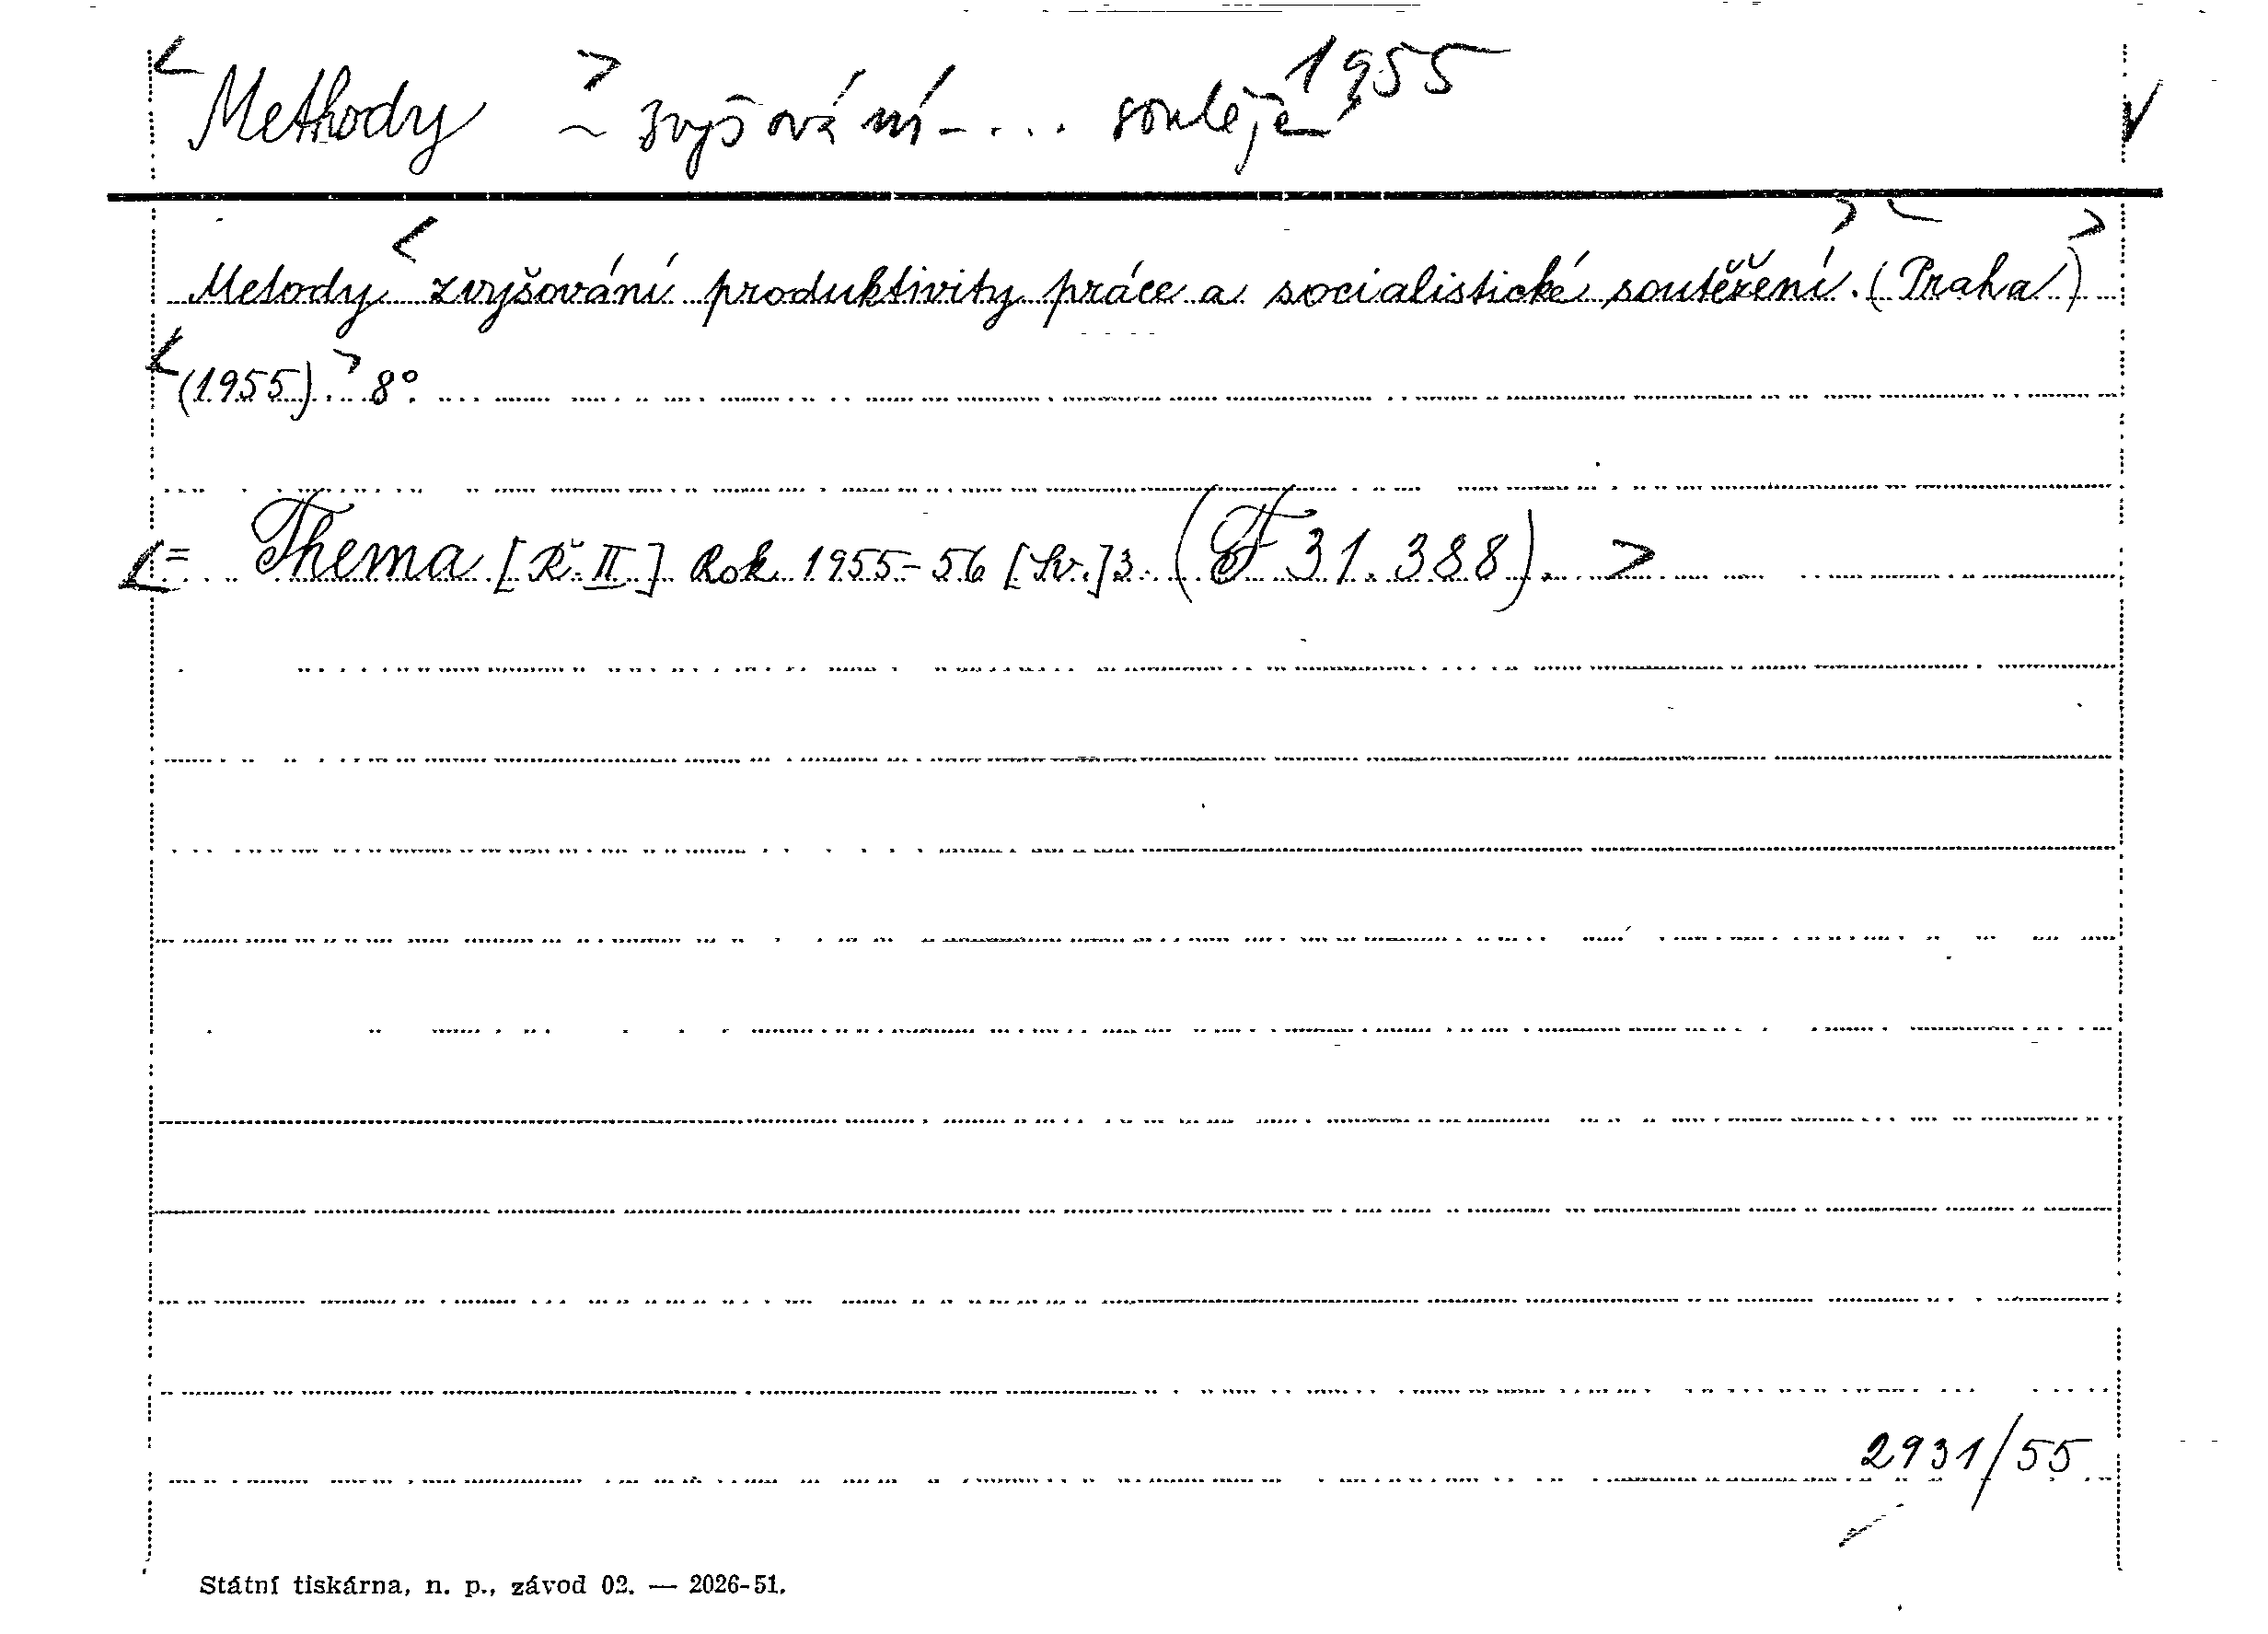 Methody ~ zvyšování - ... soutěže, 1955
Metody zvyšování produktivity práce a socialistické soutěžení. (Praha)
(1955). 8°.
= Thema [Ř. II] Rok 1955-56 [Sv.] 3. (F 31.388).
2931/55
Státní tiskárna, n. p., závod 02. — 2026-51.